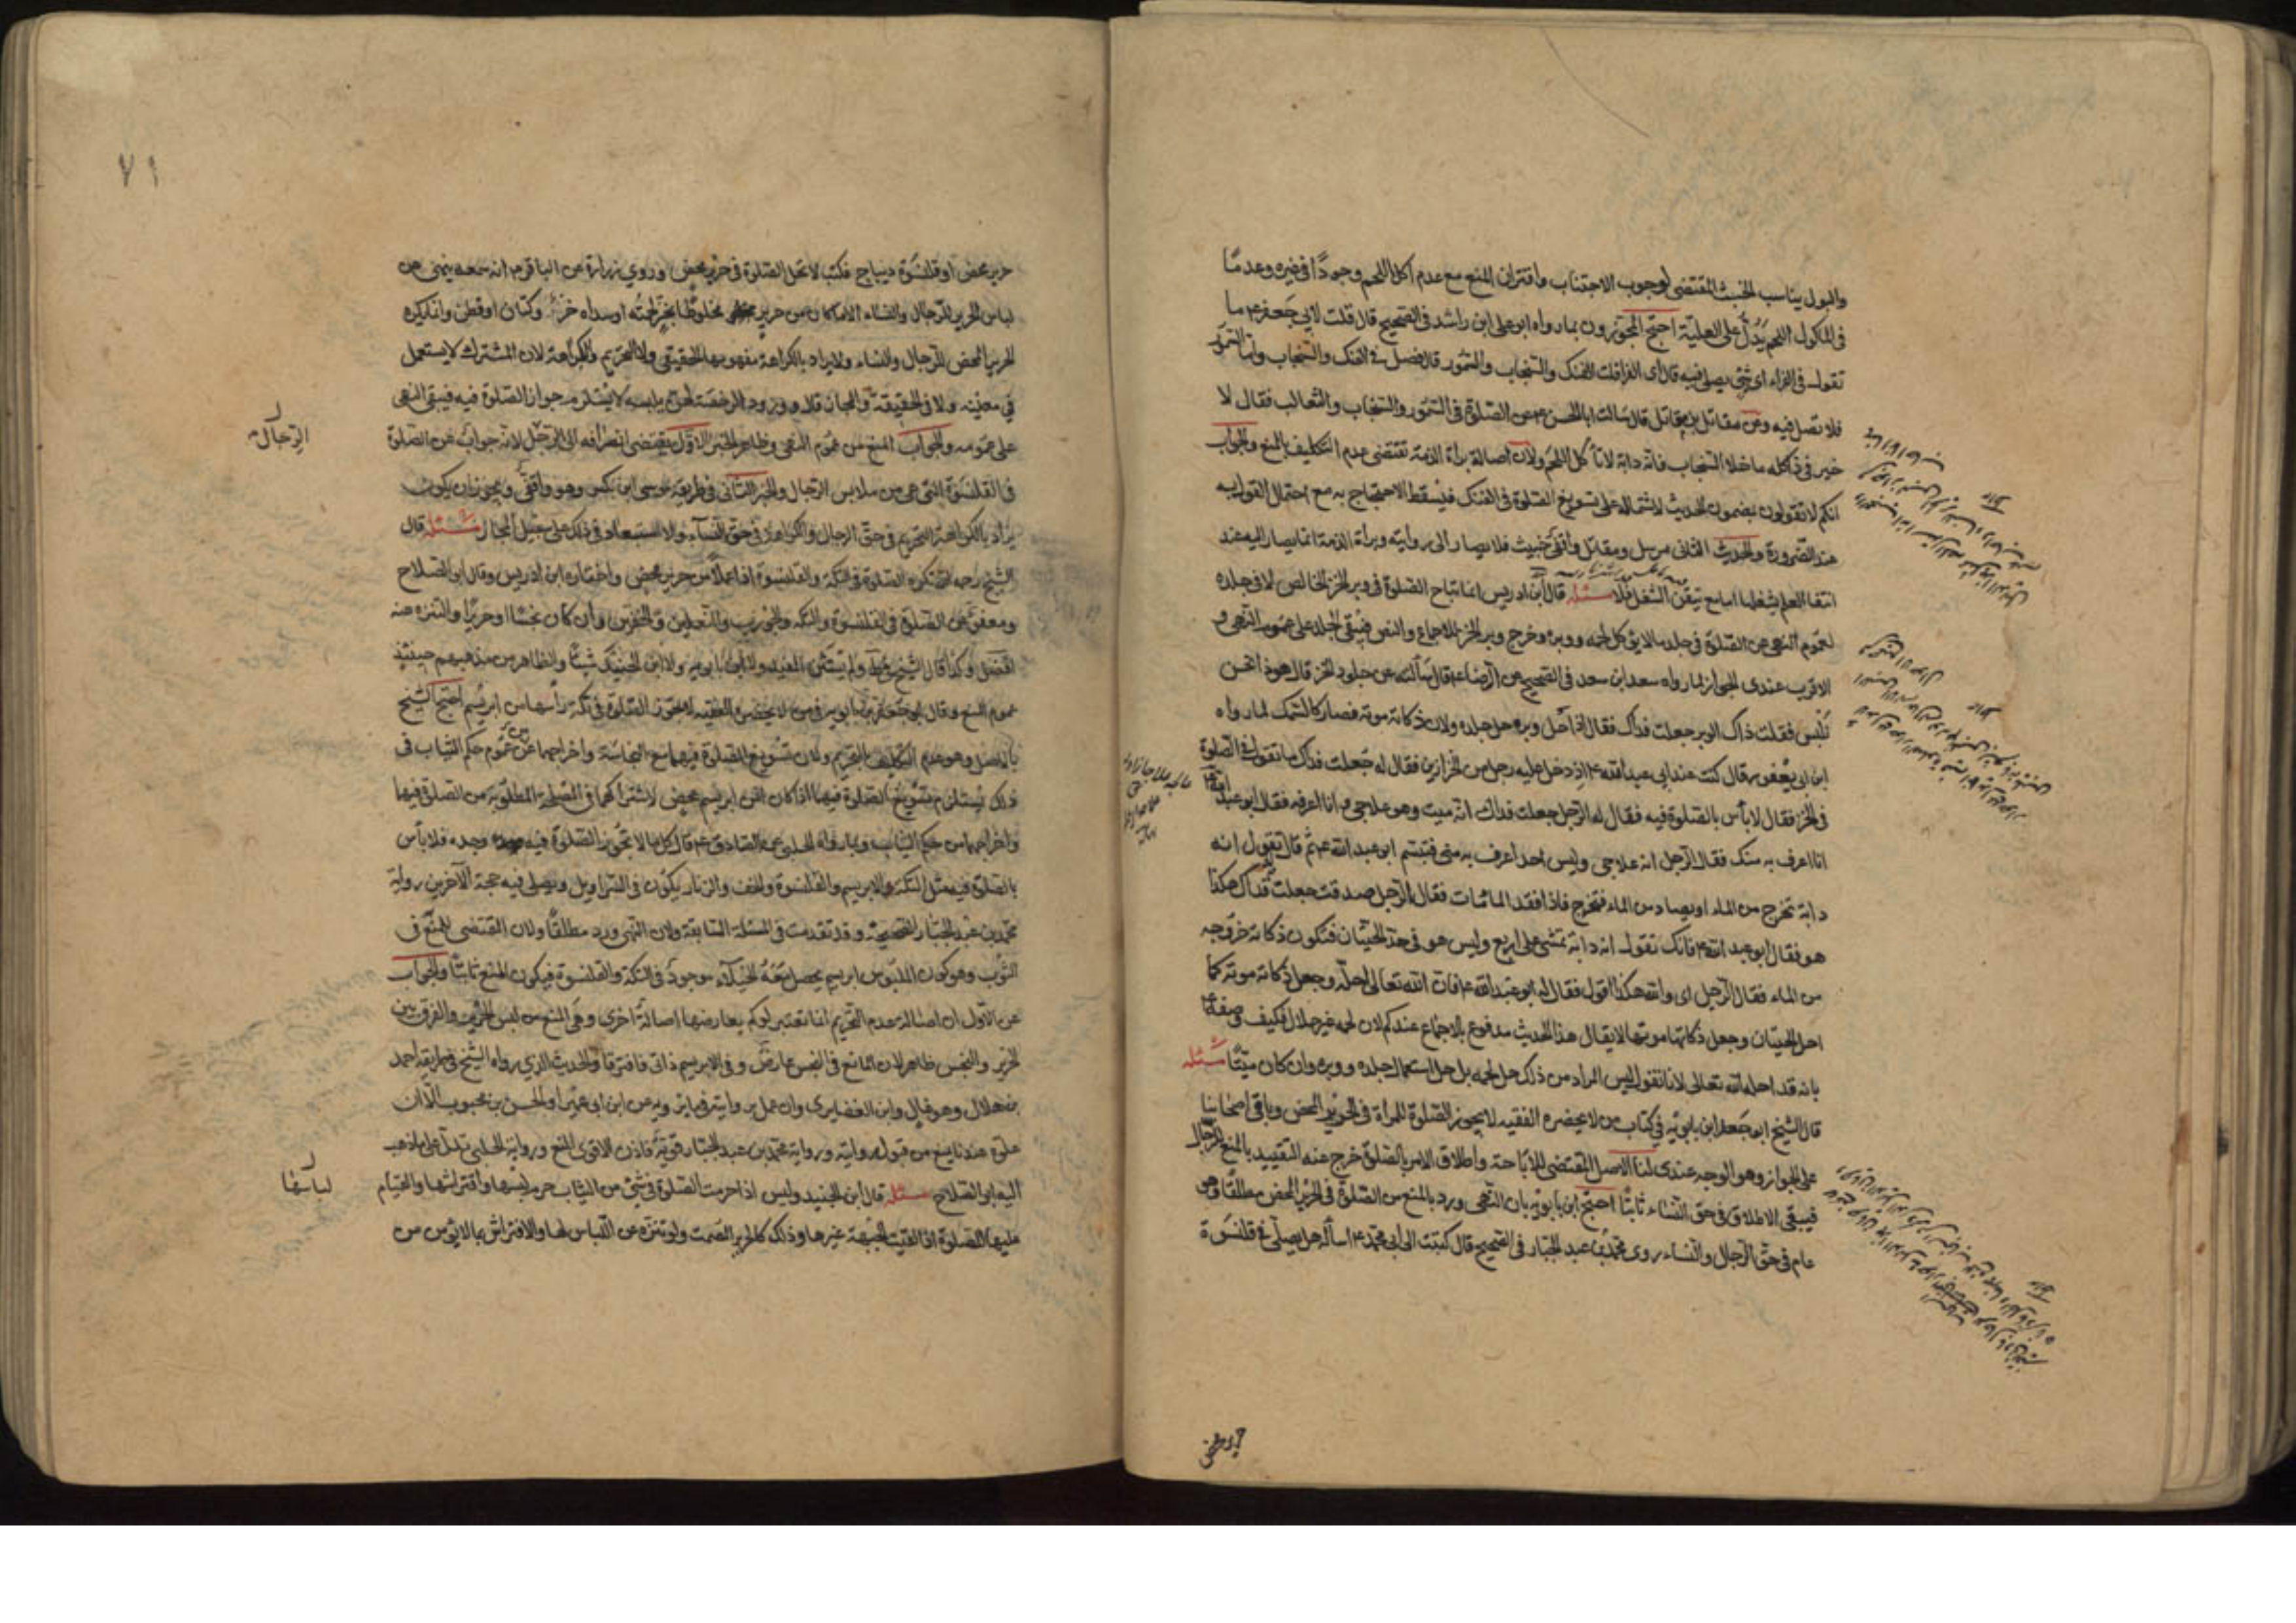 والبول يناسب الخبث المقتضى لوجوب الاجتناب واقتران المنع مع عدم اكل اللحم وجودًا في غيره وعدمًا
في المأكول اللحم يدُلُّ على العليّة احتج المجوّزون بما رواه ابو على ابن راشد في الصحيح قال قلت لابي جعفر ع ما
تقول في الفراء اى شئ يصلى فيه قال اى الفرا قلت الفنك والسنجاب والسمّور قال فصل في الفنك والسنجاب واما السمّور
فلا تصل فيه وعن مقاتل بن مقاتل قال سالت ابا الحسن ع عن الصلوة في السمّور والسنجاب والثعالب فقال لا
خير في ذا كله ما خلا السنجاب فانه دابة لا تأكل اللحم ولان اصالة براة الذمة تقتضى عدم التكليف بالمنع والجواب
انكم لا تقولون بمضمون الحديث لاشتماله على تسويغ الصلوة في الفنك فيسقط الاحتجاج به مع احتمال القول به
عند الضرورة والحديث الثانى مرسل ومقاتل واقفى خبيث فلا يصار الى روايته وبراة الذمة انما يصار اليه عند
انتفا العلم بشغلها اما مع تيقن الشغل فلا مسئله قال ابن ادريس انما تباح الصلوة في وبر الخز الخالص لا في جلده
لعموم النهى عن الصلوة في جلد ما لا يوكل لحمه ووبره وخرج وبر الخز للاجماع والنص فيبقى الجلد على عموم النهى و
الاقرب عندى الجواز لما رواه سعد ابن سعد في الصحيح عن الرضا ع قال سألته عن جلود الخز قال هوذا نحن
نلبس فقلت ذاك الوبر جعلت فداك فقال اذا حل وبره حل جلده ولان ذكاته موته فصار كالسمك لما رواه
ابن ابى يعفور قال كنت عند ابى عبد الله ع اذ دخل عليه رجل من الخزازين فقال له جعلت فداك ما تقول في الصلوة
في الخز فقال لا بأس بالصلوة فيه فقال له الرجل جعلت فداك انه ميت وهو علاجى وانا اعرفه فقال ابو عبد الله ع
انا اعرف به منك فقال الرجل انه علاجى وليس احد اعرف به منى فتبسم ابو عبد الله ع ثم قال تقول انه
دابة تخرج من الماء او يصاد من الماء فتخرج فاذا فقد الماء مات فقال الرجل صدقت جعلت فداك هكذا
هو فقال ابو عبد الله ع فانك تقول انه دابة تمشى على اربع وليس هو في حد الحيتان فتكون ذكاته خروجه
من الماء فقال الرجل اى والله هكذا اقول فقال له ابو عبد الله ع فان الله تعالى احله وجعل ذكاته موته كما
احل الحيتان وجعل ذكاتها موتها لا يقال هذا الحديث مدفوع بالاجماع عندكم لان لحمه غير حلال فكيف وصفه ع
بانه قد احله الله تعالى لانا نقول ليس المراد من ذلك حل لحمه بل حل استعمال جلده ووبره وان كان ميتًا مسئله
قال الشيخ ابو جعفر ابن بابويه في كتاب من لا يحضره الفقيه لا يجوز الصلوة للمراة في الحرير المحض وباقى اصحابنا
على الجواز وهو الوجه عندى لنا الاصل المقتضى للاباحة واطلاق الامر بالصلوة خرج عنه التقييد بالمنع للرجال
فيبقى الاطلاق في حق النساء ثابتًا احتج ابن بابويه بان النهى ورد بالمنع من الصلوة في الحرير المحض مطلقًا وهو
عام في حق الرجال والنساء روى محمد بن عبد الجبار في الصحيح قال كتبت الى ابى محمد ع اسأله هل يصلى في قلنسوة
٧١
حرير محض او قلنسوة ديباج فكتب لا تحل الصلوة في حرير محض وروى زرارة عن الباقر ع انه سمعه ينهى عن
لباس الحرير للرجال والنساء الا ما كان من حرير مخلوط بخز لحمته او سداه خز او كتان او قطن وانما يكره
الحرير المحض للرجال والنساء ولا يراد بالكراهة مفهومها الحقيقى ولا التحريم والكراهة لان المشترك لا يستعمل
في معنييه ولا في الحقيقة والمجاز قال وورود الرخصة لهن بلبسه لا يستلزم جواز الصلوة فيه فيبقى النهى
على عمومه والجواب المنع من عموم النهى وظاهر الخبر الاول يقتضى انصرافه الى الرجل لانه جواب عن الصلوة
الرجال
في القلنسوة التى هى من ملابس الرجال والخبر الثانى في طريقه موسى ابن بكر وهو واقفى ويجوز ان يكون
يراد بالكراهة التحريم في حق الرجال والكراهة في حق النساء ولا استبعاد في ذلك على سبيل المجاز مسئله قال
الشيخ رحمه الله تكره الصلوة في التكة والقلنسوة اذا عملا من حرير محض واختاره ابن ادريس وقال ابو الصلاح
ومعفو عن الصلوة في القلنسوة والتكة والجورب والنعلين والخفين وان كان نجسًا او حريرًا والتنزه عنه
افضل وكذا قال الشيخ في ط ولم يستثن المفيد ولا ابن بابويه ولا ابن الجنيد شيئًا والظاهر من مذهبهم حينئذ
عموم المنع وقال ابو جعفر بن بابويه في من لا يحضره الفقيه لا تجوز الصلوة في تكة رأسها من ابريسم احتج الشيخ
بالاصل وهو عدم التكليف بالتحريم ولان تسويغ الصلوة فيهما مع النجاسة واخراجهما عن عموم حكم الثياب في
ذلك يستلزم تسويغ الصلوة فيهما اذا كان من ابريسم محض لاشتراكهما في المصلحة المطلوبة من الصلوة فيها
واخراجهما من حكم الثياب وبما رواه الحلبى عن الصادق ع قال كل ما لا تجوز الصلوة فيه وحده فلا بأس
بالصلوة فيه مثل التكة والابريسم والقلنسوة والخف والزنار يكون في السراويل ويصلى فيه حجة الآخرين رواية
محمد بن عبد الجبار الصحيحة وقد تقدمت في المسئلة السابقة ولان النهى ورد مطلقًا ولان المقتضى للمنع في
الثوب وهو كون الملبوس ابريسم يحصل معه الخيلاء موجود في التكة والقلنسوة فيكون المنع ثابتًا والجواب
عن الاول ان اصالة عدم التحريم انما تعتبر لو لم يعارضها اصالة اخرى وهى المنع من لبس الحرير والفرق بين
الحرير والنجس ظاهر لان المانع في النجس عارض وفي الابريسم ذاتى فافترقا والحديث الذى رواه الشيخ في طريقه احمد
بن هلال وهو غال وابن الغضايرى وان عمل بروايته فيما يرويه عن ابن ابى عمير او الحسن بن محبوب الا ان
غلوه عندنا يمنع من قبول روايته ورواية محمد بن عبد الجبار قوية فاذن الاقوى المنع ورواية الحلبى تدل على ما ذهب
اليه ابو الصلاح مسئله قال ابن الجنيد وليس اذا حرمت الصلوة في شئ من الثياب حرم لبسها وافتراشها والقيام
عليها للصلوة اذا لقيت الجبهة غيرها وذلك كالحرير الصمت ولو تنزه عن اللباس لها والافتراش بما لا يؤمن من